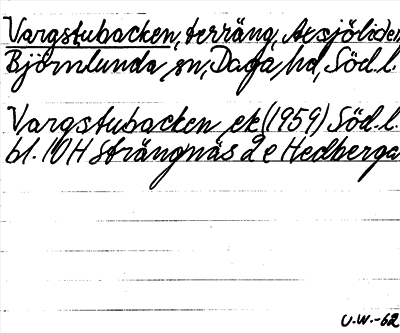 Vargstubacken, terräng, Aksjöliden
Björnlunda sn, Daga hd, Söd. l.
Vargstubacken ek (1959) Söd. l.
bl. 10H Strängnäs 2e Hedberga
U.W.-62